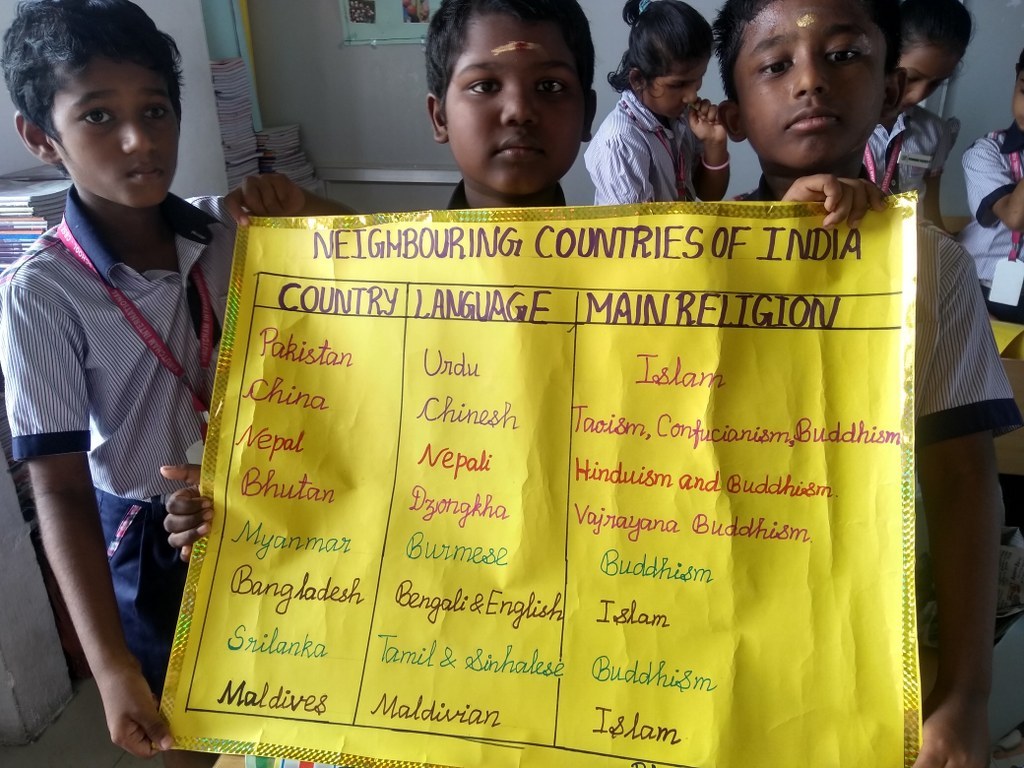 NEIGHBOURING COUNTRIES OF INDIA
COUNTRY LANGUAGE MAIN RELIGION
Pakistan Urdu Islam
China Chinesh Taoism, Confucianism, Buddhism
Nepal Nepali Hinduism and Buddhism.
Bhutan Dzongkha Vajrayana Buddhism.
Myanmar Burmese Buddhism
Bangladesh Bengali & English Islam
Srilanka Tamil & Sinhalese Buddhism
Maldives Maldivian Islam